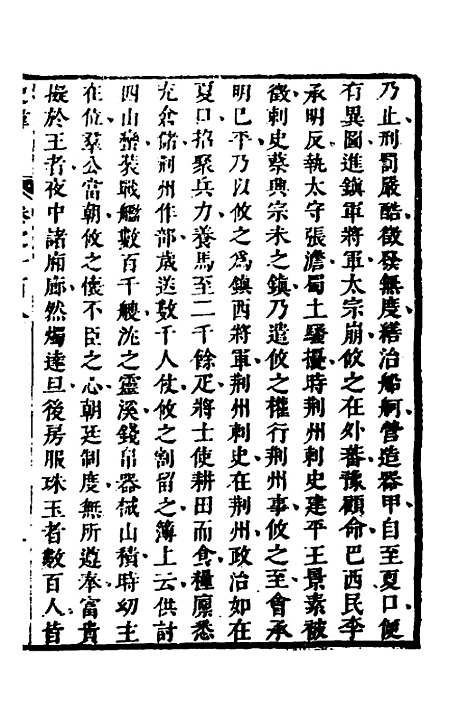 乃止刑罰嚴酷徵發無度繕治船舸營造器甲自至夏口便
有異圖進鎮軍將軍太宗崩攸之在外蕃豫顧命巴西民李
承明反執太守張澹蜀土騷擾時荆州刺史建平王景素被
徵刺史蔡興宗未之鎮乃遣攸之權行荆州事攸之至會承
明已平乃以攸之爲鎮西將軍荆州刺史在荆州政治如在
夏口招聚兵力養馬至二千餘疋將士使耕田而食糧廪悉
充倉儲荆州作部歲送數千人仗攸之割留之簿上云供討
四山蠻裝戰艦數百千艘沈之靈溪錢帛器械山積時幼主
在位羣公當朝攸之懐不臣之心朝廷制度無所遵奉富貴
擬於王者夜中諸廂廊然燭達旦後房服珠玉者數百人皆